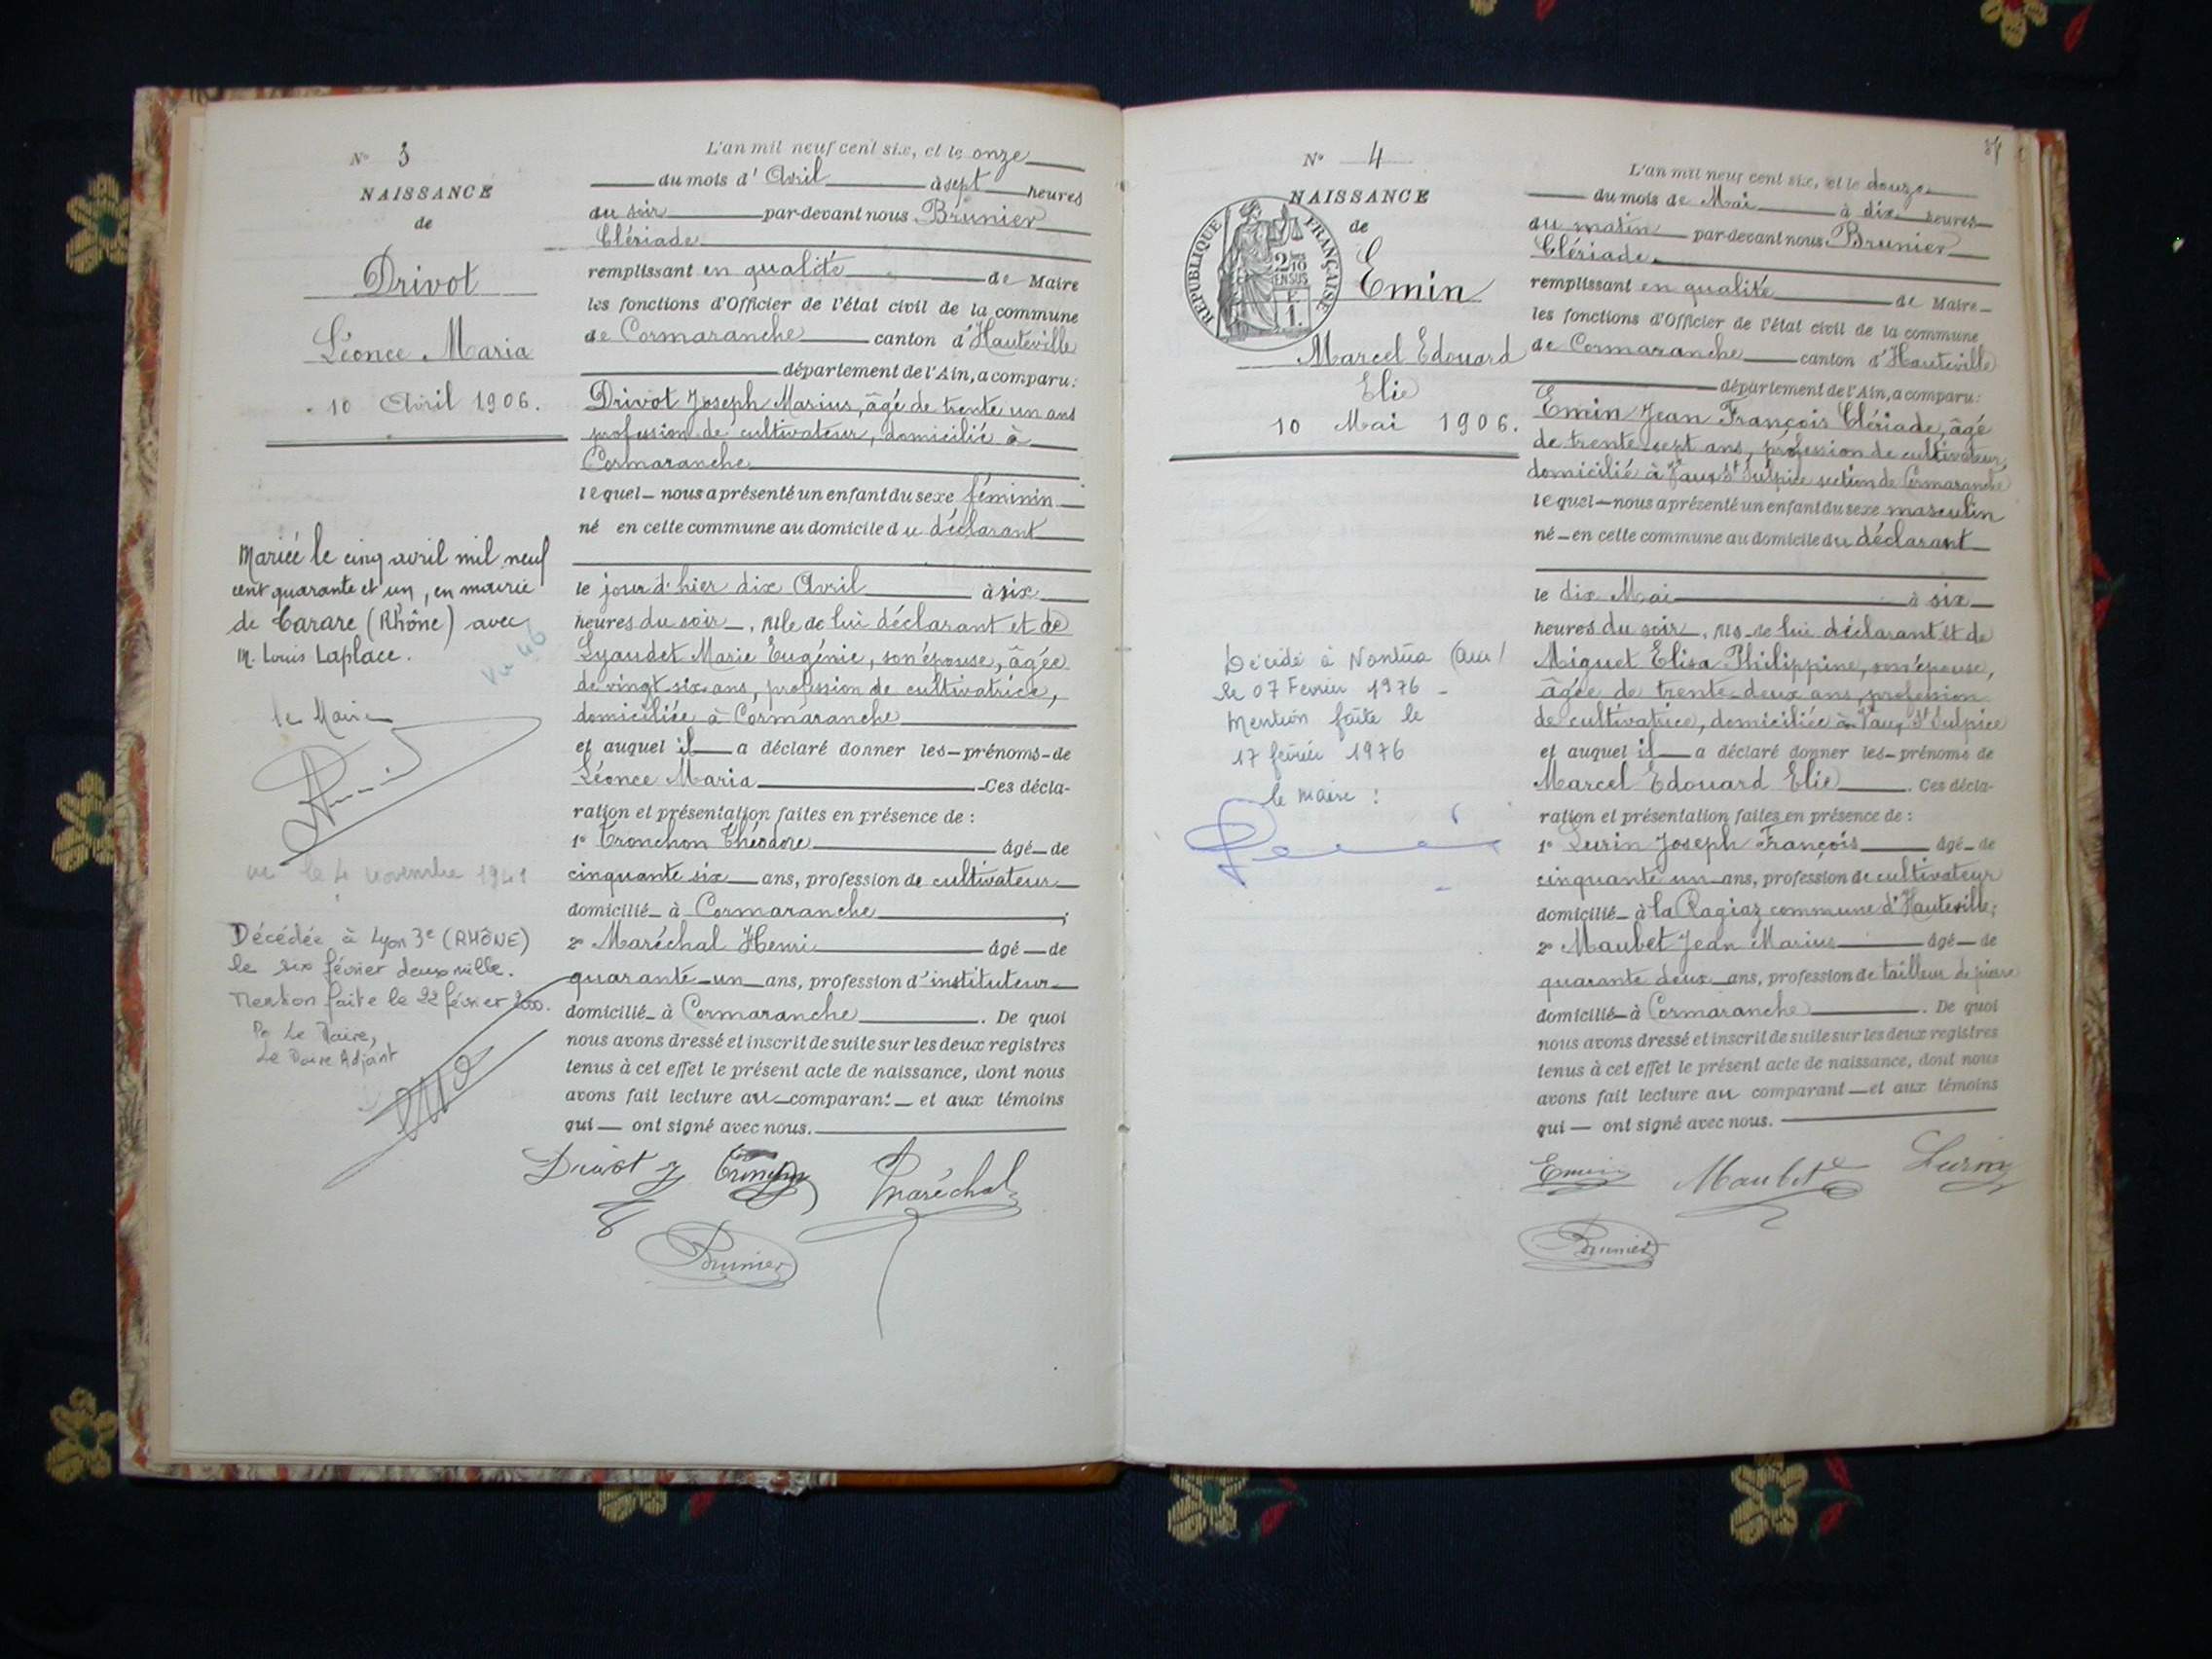 N° 3
NAISSANCE
de
Drivot
Léonce Maria
10 Avril 1906.
Mariée le cinq avril mil neuf
cent quarante et un, en mairie
de Tarare (Rhône) avec
M. Louis Laplace.
Vu 46
le Maire
vu le 4 novembre 1941
Décédée à Lyon 3e (RHÔNE)
le six février deux mille.
Mention faite le 22 février 2000.
Po Le Maire,
Le Maire Adjoint
L'an mil neuf cent six, et le onze
du mois d' Avril à sept heures
du soir par-devant nous Brunier
Clériade
remplissant en qualité de Maire
les fonctions d'Officier de l'état civil de la commune
de Cormaranche canton d'Hauteville
département de l'Ain, a comparu:
Drivot Joseph Marius, âgé de trente un ans
profession de cultivateur, domicilié à
Cormaranche
lequel nous a présenté un enfant du sexe féminin
né en cette commune au domicile du déclarant
le jour d'hier dix Avril à six
heures du soir, fille de lui déclarant et de
Lyaudet Marie Eugénie, son épouse, âgée
de vingt-six ans, profession de cultivatrice,
domiciliée à Cormaranche
et auquel il a déclaré donner les prénoms de
Léonce Maria Ces décla-
ration et présentation faites en présence de :
1° Tronchon Théodore âgé de
cinquante six ans, profession de cultivateur
domicilié à Cormaranche ;
2° Maréchal Henri âgé de
quarante-un ans, profession d'instituteur
domicilié à Cormaranche. De quoi
nous avons dressé et inscrit de suite sur les deux registres
tenus à cet effet le présent acte de naissance, dont nous
avons fait lecture au comparant et aux témoins
qui ont signé avec nous.
Drivot J Maréchal
Brunier
N° 4
NAISSANCE
de
RÉPUBLIQUE FRANÇAISE
Emin
Marcel Edouard
Elie
10 Mai 1906.
Décédé à Nantua (Ain)
le 07 Fevrier 1976
Mention faite le
17 février 1976
le maire :
L'an mil neuf cent six, et le douze
du mois de Mai à dix heures
du matin par-devant nous Brunier
Clériade
remplissant en qualité de Maire
les fonctions d'Officier de l'état civil de la commune
de Cormaranche canton d'Hauteville
département de l'Ain, a comparu:
Emin Jean François Clériade, âgé
de trente-sept ans, profession de cultivateur,
domicilié à Vaux St Sulpice section de Cormaranche
lequel nous a présenté un enfant du sexe masculin
né en cette commune au domicile du déclarant
le dix Mai à six
heures du soir, fils de lui déclarant et de
Miguet Elisa Philippine, son épouse,
âgée de trente-deux ans, profession
de cultivatrice, domiciliée à Vaux St Sulpice
et auquel il a déclaré donner les prénoms de
Marcel Edouard Elie. Ces décla-
ration et présentation faites en présence de :
1° Lurin Joseph François âgé de
cinquante un ans, profession de cultivateur
domicilié à la Ragiaz commune d'Hauteville;
2° Maubet Jean Marius âgé de
quarante deux ans, profession de tailleur de pierre
domicilié à Cormaranche. De quoi
nous avons dressé et inscrit de suite sur les deux registres
tenus à cet effet le présent acte de naissance, dont nous
avons fait lecture au comparant et aux témoins
qui ont signé avec nous.
Emin Maubet Lurin
Brunier